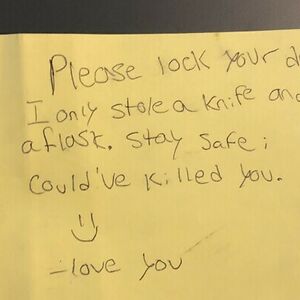 Please lock your
I only stole a knife
a flask. Stay safe i
could've killed you.
-love you